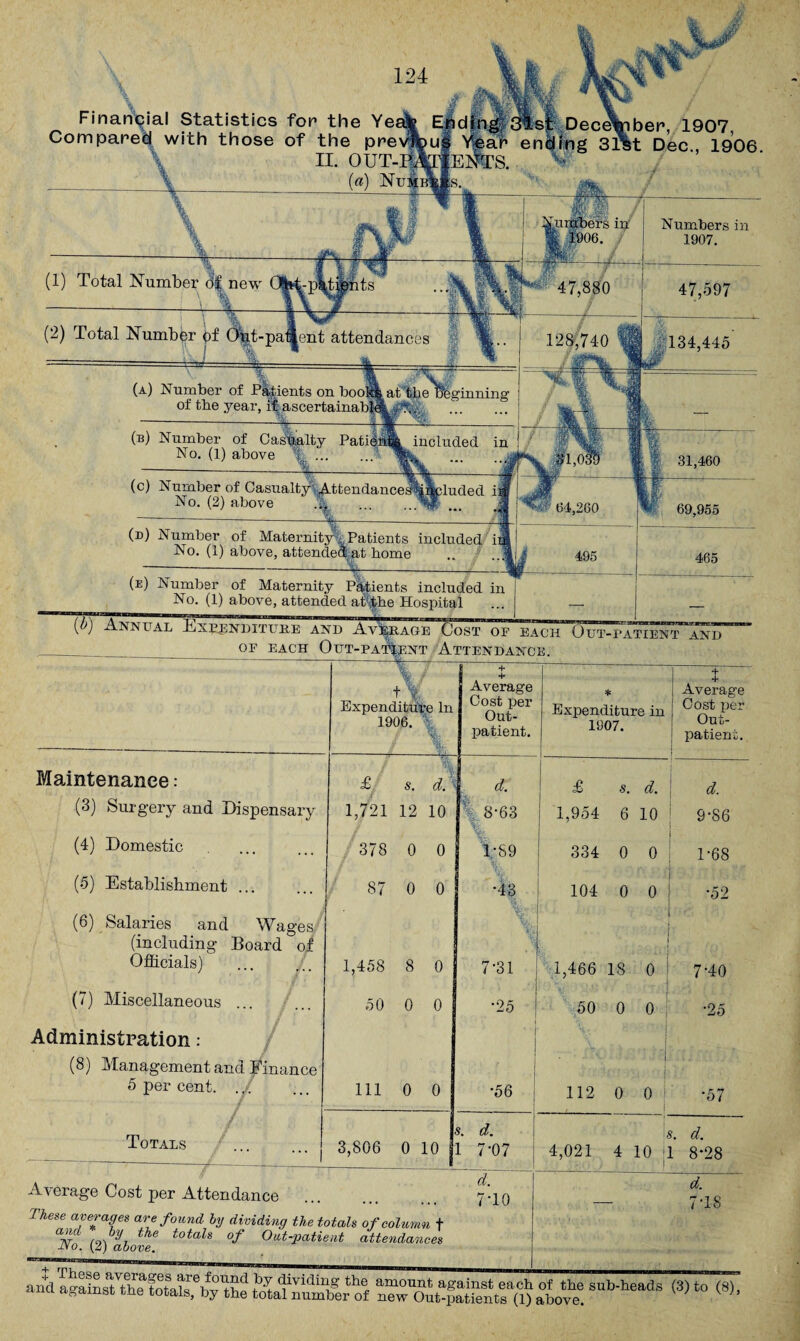 124
Financial Statistics for the Year Ending 31st December, 1907,
Compared with those of the previous Year ending 31st Dec., 1906.
II. OUT-PATIENTS.
(a) Numbers.
Numbers in 1906. Numbers in 1907.
(1) Total Number of new Out-patients ... 47,880 47,597
(2) Total Number of Out-patient attendances ... 128,740 134,445
(A) Number of Patients on books at the beginning
of the year, if ascertainable ... ... — —
(B) Number of Casualty Patients included in
No. (1) above ... ... ... ... 31,039 31,460
(C) Number of Casualty Attendances included in
No. (2) above ... ... ... ... 64,260 69,955
(D) Number of Maternity Patients included in
No. (1) above, attended at home ... ... 495 465
(E) Number of Maternity Patients included in
No. (1) above, attended at the Hospital ... — —
(b) Annual Expenditure and Average Cost of each Out-patient and
of each Out-patient Attendance.
† Expenditure in 1906. ‡ Average Cost per Out-patient. * Expenditure in 1907. ‡ Average Cost per Out-patient.
Maintenance: £ s. d. d. £ s. d. d.
(3) Surgery and Dispensary 1,721 12 10 8·63 1,954 6 10 9·86
(4) Domestic ... ... 378 0 0 1·89 334 0 0 1·68
(5) Establishment ... ... 87 0 0 ·43 104 0 0 ·52
(6) Salaries and Wages
(including Board of
Officials) ... ... 1,458 8 0 7·31 1,466 18 0 7·40
(7) Miscellaneous ... ... 50 0 0 ·25 50 0 0 ·25
Administration:
(8) Management and Finance
5 per cent. ... ... 111 0 0 ·56 112 0 0 ·57
Totals ... ... 3,806 0 10 s. d. 1 7·07 4,021 4 10 s. d. 1 8·28
Average Cost per Attendance ... ... ... d. 7·10 — d. 7·18
These averages are found by dividing the totals of column †
and * by the totals of Out-patient attendances
No. (2) above.
‡ These averages are found by dividing the amount against each of the sub-heads (3) to (8),
and against the totals, by the total number of new Out-patients (1) above.